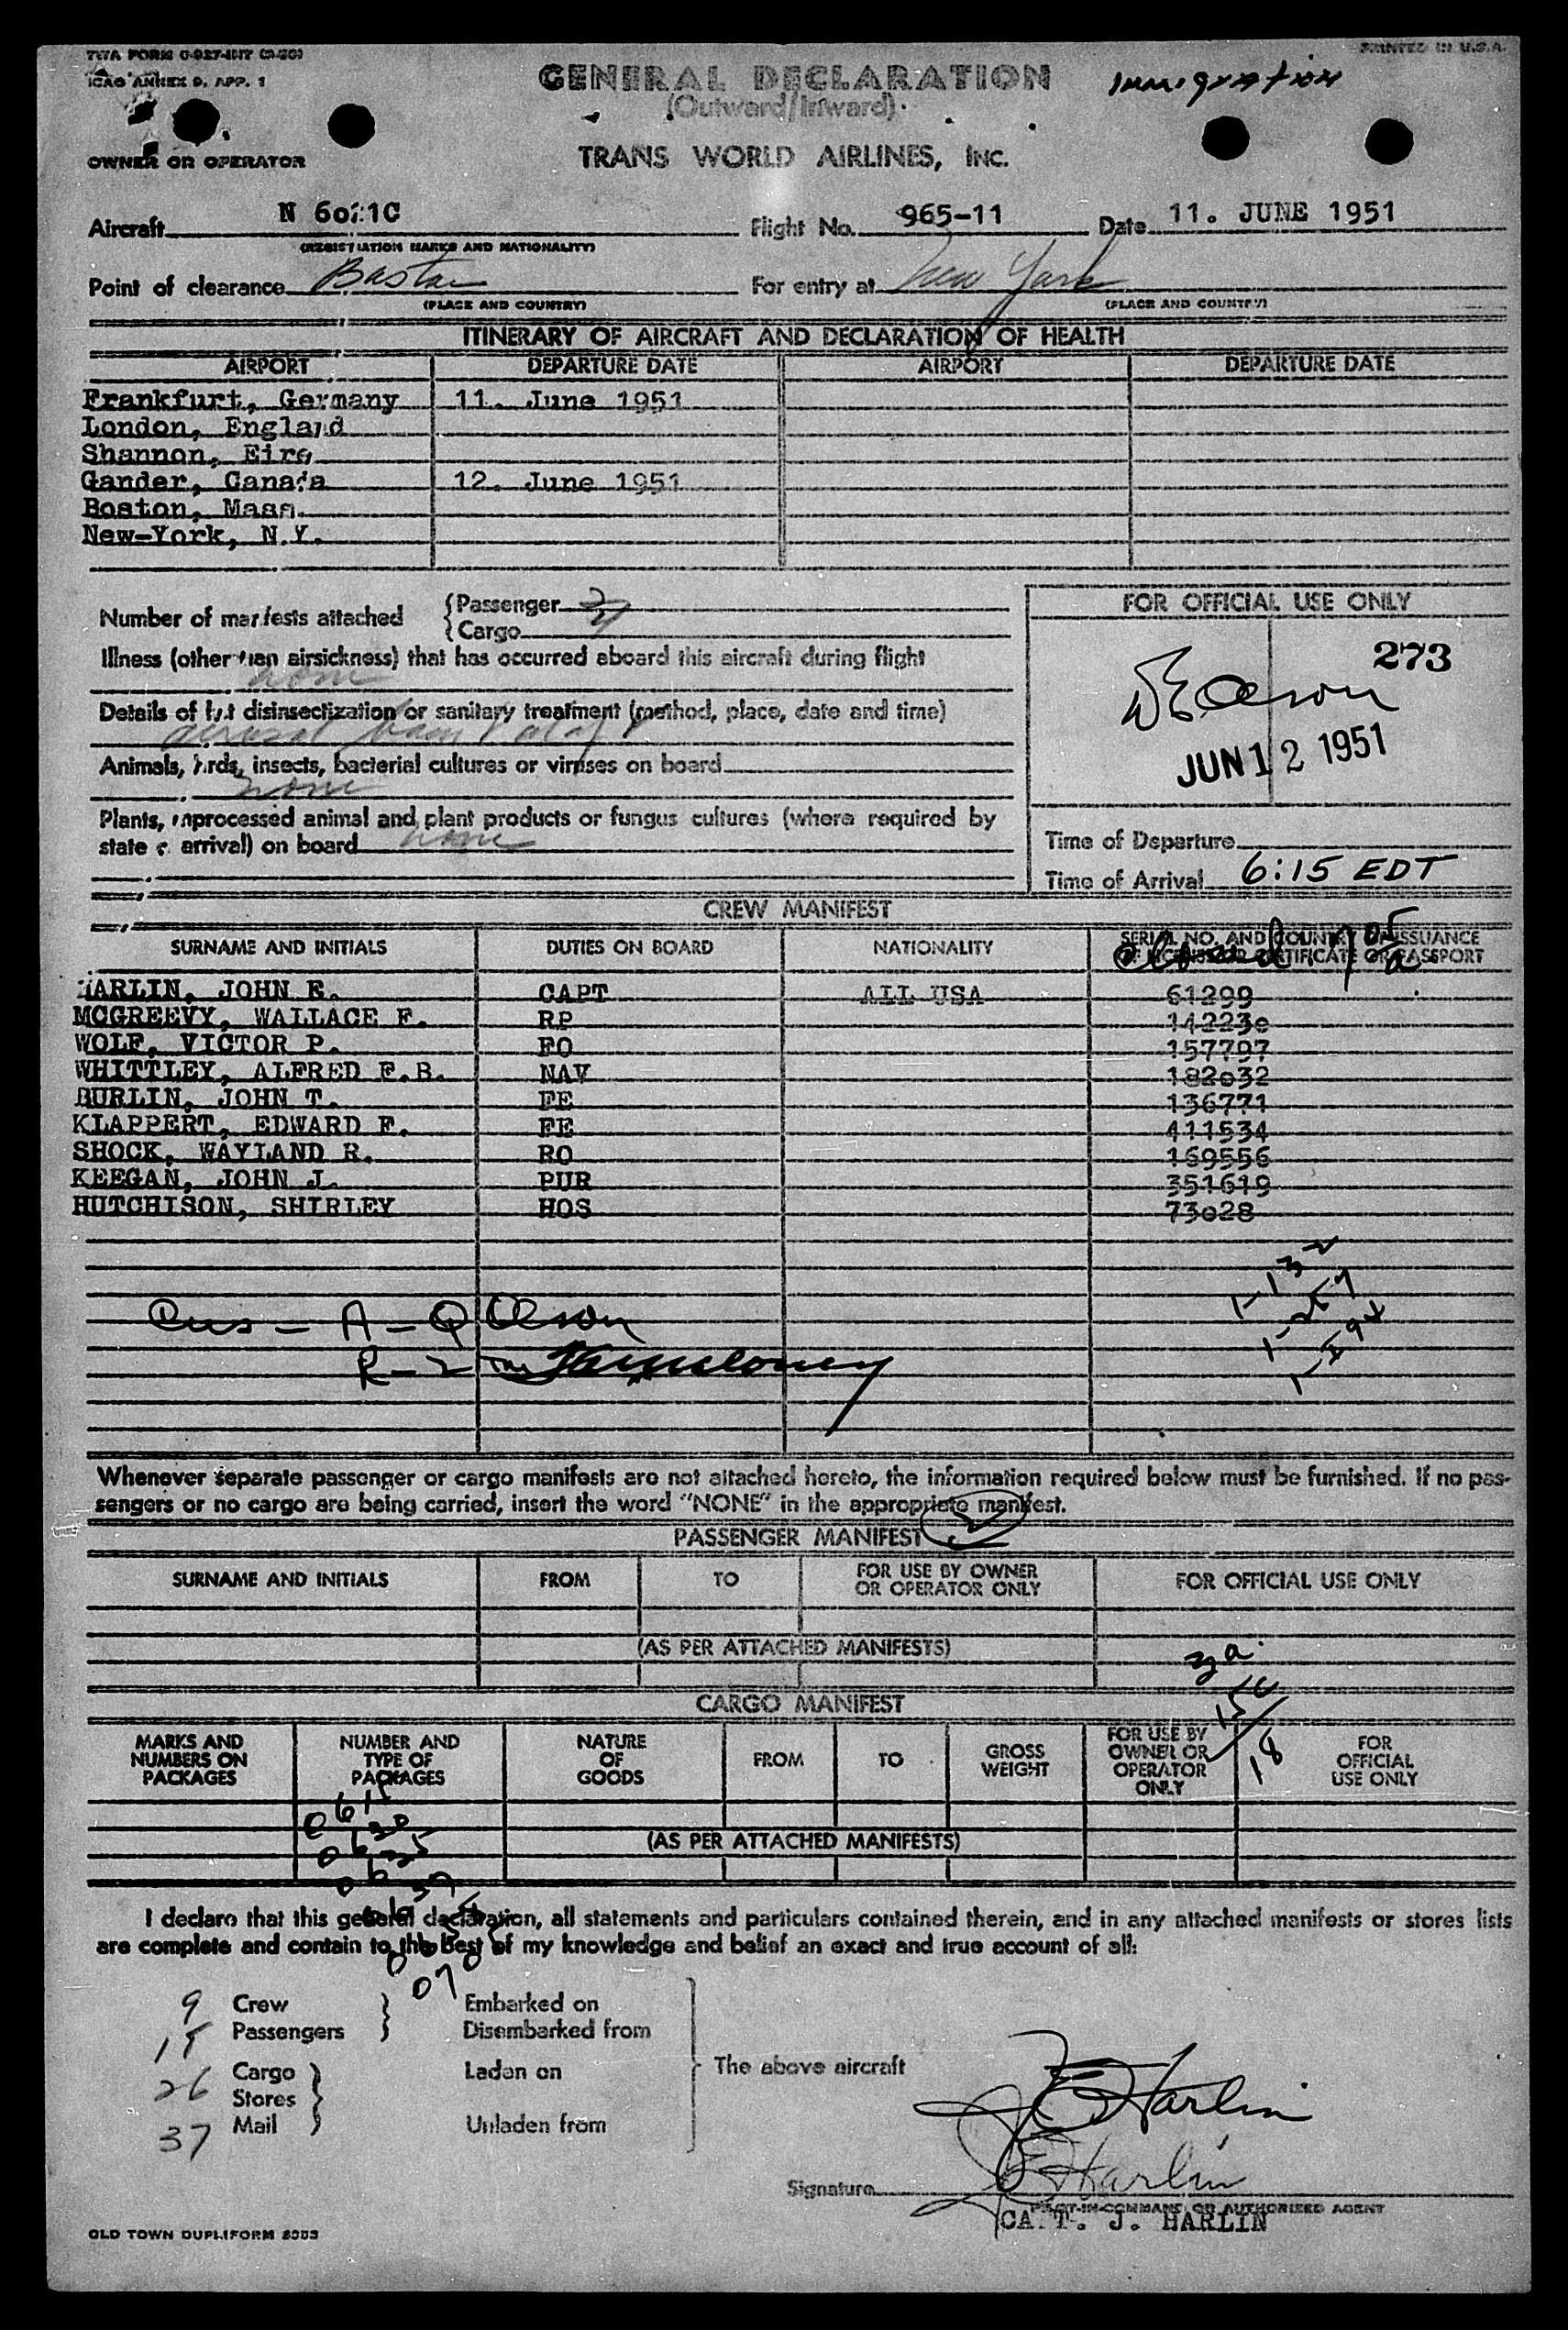 TWA FORM 0-927-INT
PRINTED IN U.S.A.
ICAO ANNEX 9, APP. 1
GENERAL DECLARATION
Immigration
(Outward/Inward)
OWNER OR OPERATOR
TRANS WORLD AIRLINES, INC.
Aircraft N 6021C Flight No. 965-11 Date 11. JUNE 1951
(REGISTRATION MARKS AND NATIONALITY)
Point of clearance Boston For entry at New York
(PLACE AND COUNTRY) (PLACE AND COUNTRY)
ITINERARY OF AIRCRAFT AND DECLARATION OF HEALTH
AIRPORT DEPARTURE DATE AIRPORT DEPARTURE DATE
Frankfurt, Germany 11. June 1951
London, England
Shannon, Eire
Gander, Canada 12. June 1951
Boston, Mass.
New-York, N.Y.
Number of manifests attached
Passenger
Cargo
Illness (other than airsickness) that has occurred aboard this aircraft during flight
none
Details of last disinsectization or sanitary treatment (method, place, date and time)
aerosol
Animals, birds, insects, bacterial cultures or viruses on board
none
Plants, unprocessed animal and plant products or fungus cultures (where required by
state of arrival) on board none
FOR OFFICIAL USE ONLY
273
JUN 12 1951
Time of Departure
Time of Arrival 6:15 EDT
CREW MANIFEST
SURNAME AND INITIALS DUTIES ON BOARD NATIONALITY SERIAL NO. AND COUNTRY OF ISSUANCE
OF LICENSE OR CERTIFICATE OR PASSPORT
HARLIN, JOHN E. CAPT ALL USA 61299
MCGREEVY, WALLACE F. RP 142230
WOLF, VICTOR P. FO 157797
WHITTLEY, ALFRED F.B. NAV 182032
BURLIN, JOHN T. FE 136771
KLAPPERT, EDWARD F. FE 411534
SHOCK, WAYLAND R. RO 169556
KEEGAN, JOHN J. PUR 351619
HUTCHISON, SHIRLEY HOS 73028
1-132
Cus - A - Q Olson
R-2
Whenever separate passenger or cargo manifests are not attached hereto, the information required below must be furnished. If no pas-
sengers or no cargo are being carried, insert the word "NONE" in the appropriate manifest.
PASSENGER MANIFEST
SURNAME AND INITIALS FROM TO FOR USE BY OWNER
OR OPERATOR ONLY FOR OFFICIAL USE ONLY
(AS PER ATTACHED MANIFESTS)
3a
18
CARGO MANIFEST
MARKS AND
NUMBERS ON
PACKAGES
NUMBER AND
TYPE OF
PACKAGES
NATURE
OF
GOODS
FROM
TO
GROSS
WEIGHT
FOR USE BY
OWNER OR
OPERATOR
ONLY
FOR
OFFICIAL
USE ONLY
0630
0625
(AS PER ATTACHED MANIFESTS)
I declare that this general declaration, all statements and particulars contained therein, and in any attached manifests or stores lists
are complete and contain to the best of my knowledge and belief an exact and true account of all:
9 Crew
15 Passengers
26 Cargo
Stores
37 Mail
Embarked on
Disembarked from
Laden on
Unladen from
The above aircraft
JE Harlin
Signature JE Harlin
PILOT-IN-COMMAND OR AUTHORIZED AGENT
CAPT. J. HARLIN
OLD TOWN DUPLIFORM